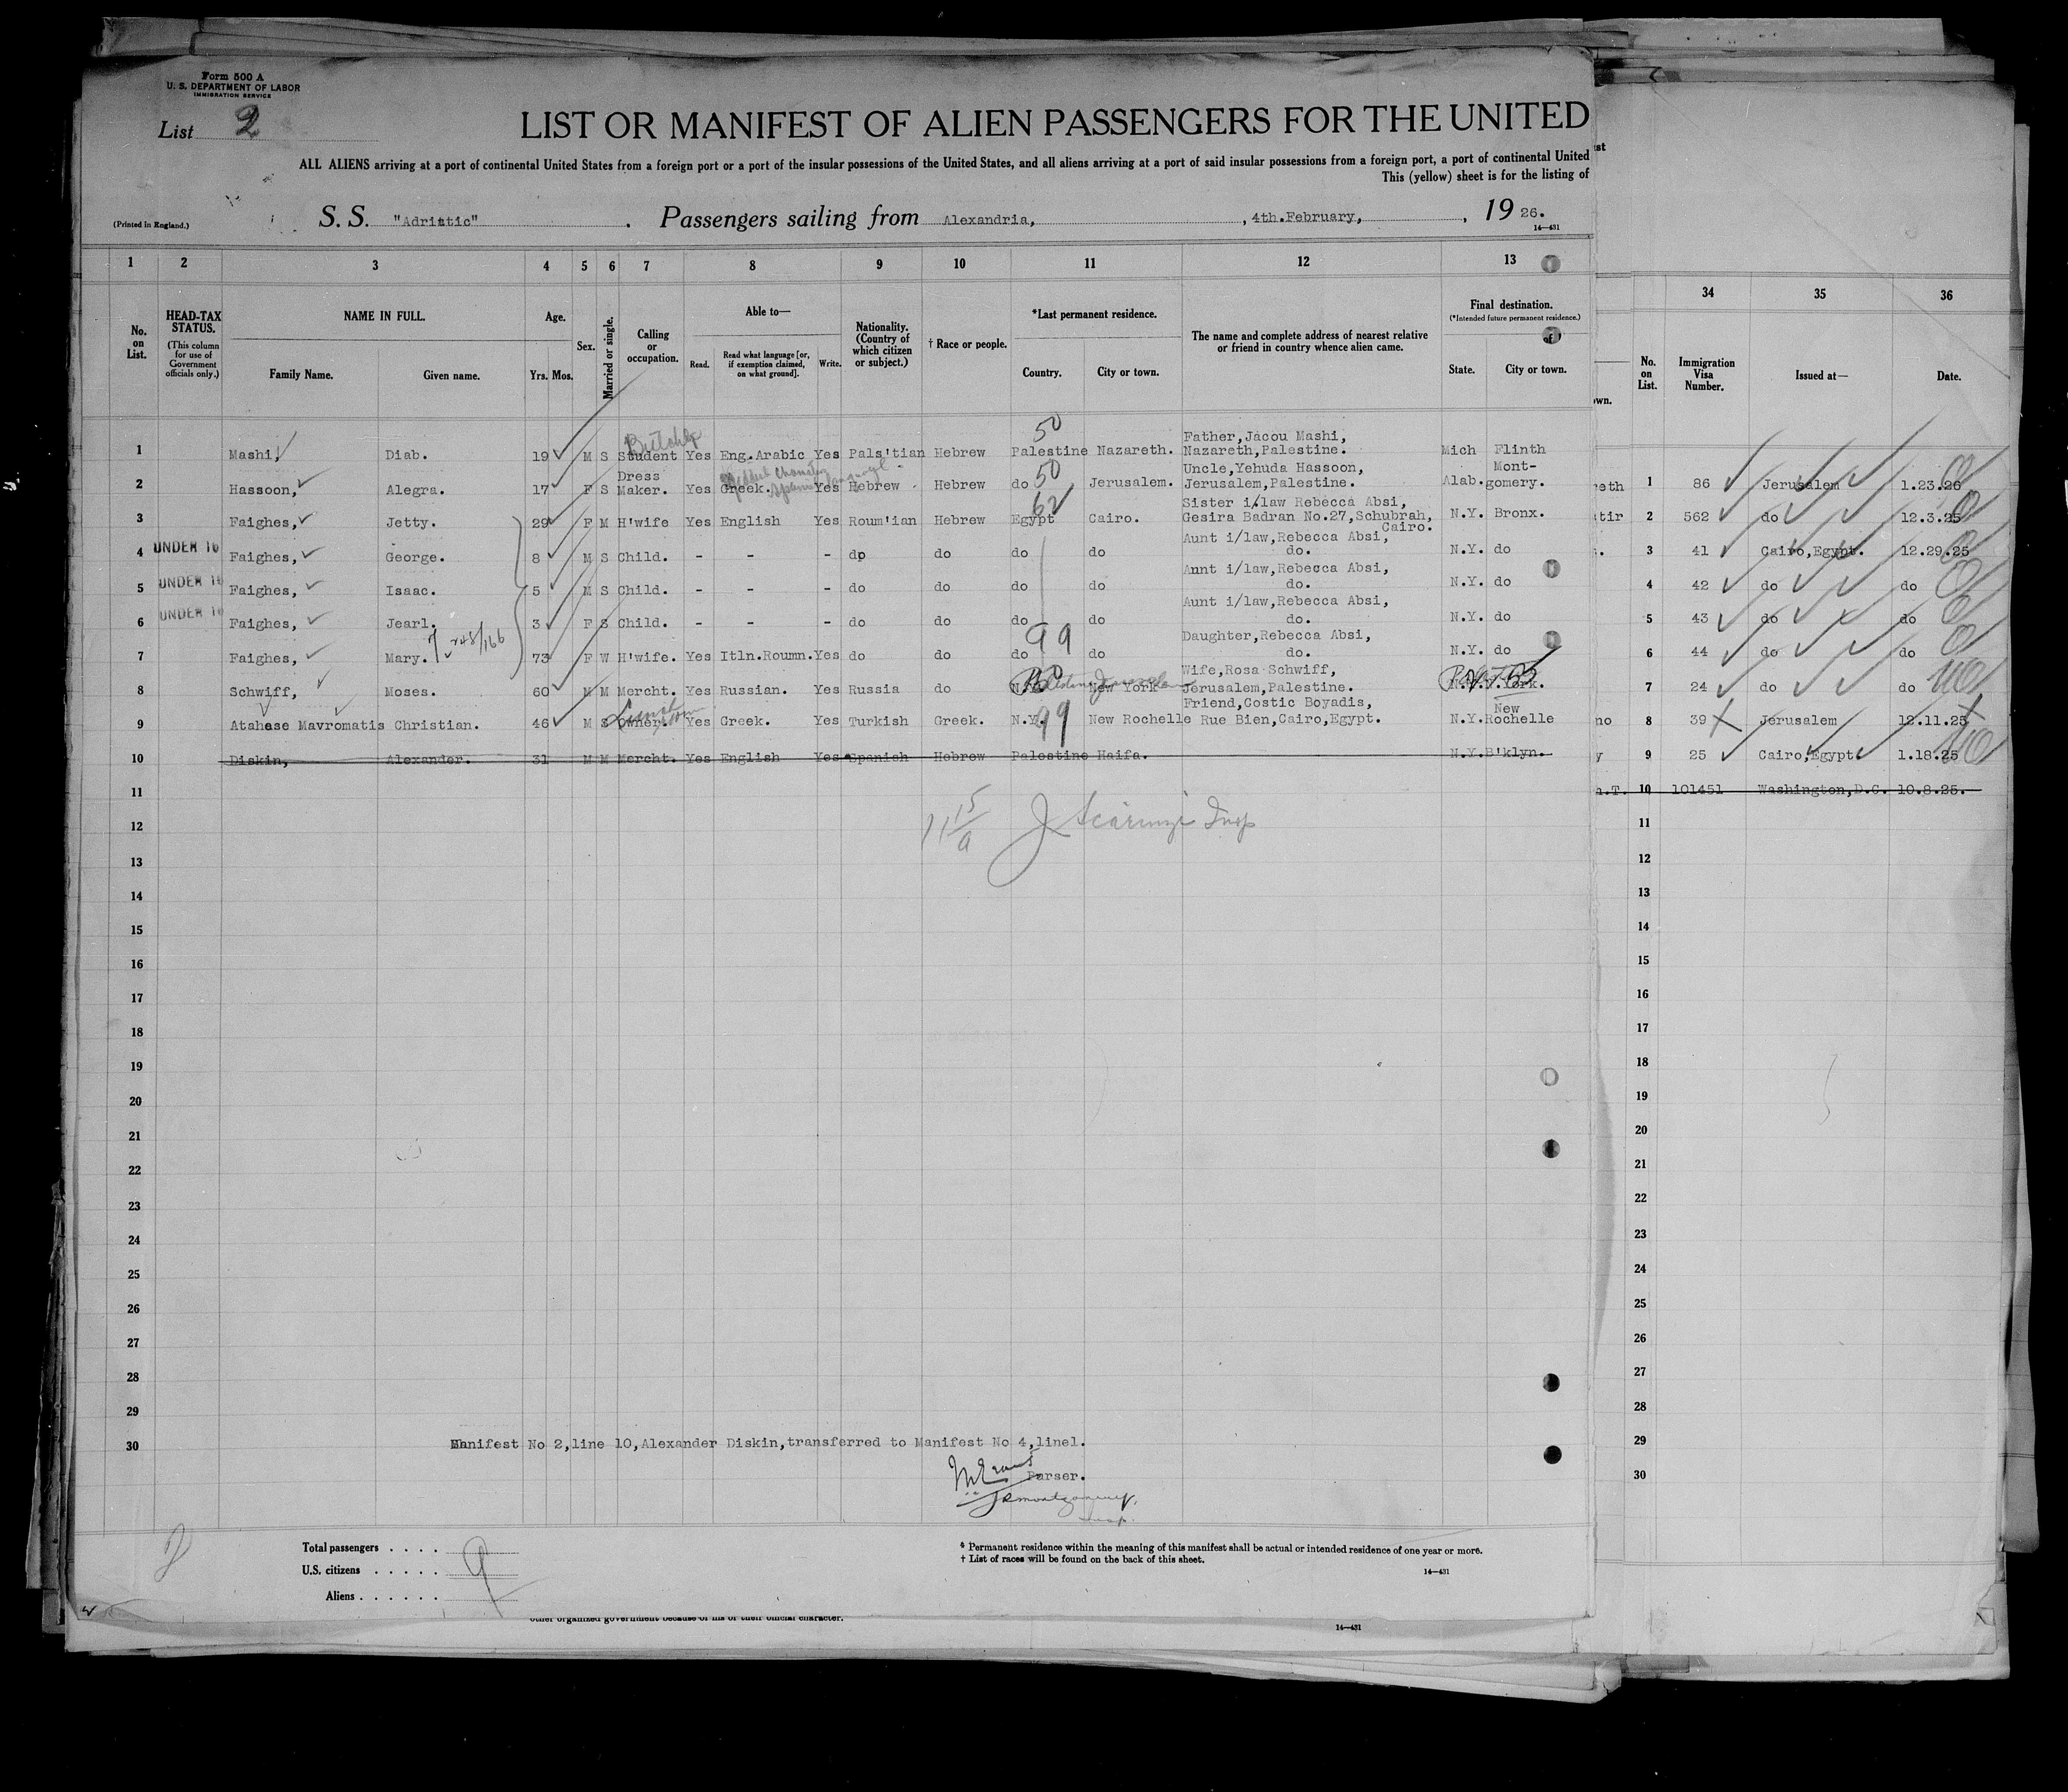 Form 500 A
U. S. DEPARTMENT OF LABOR
IMMIGRATION SERVICE
List 2
LIST OR MANIFEST OF ALIEN PASSENGERS FOR THE UNITED
ALL ALIENS arriving at a port of continental United States from a foreign port or a port of the insular possessions of the United States, and all aliens arriving at a port of said insular possessions from a foreign port, a port of continental United
This (yellow) sheet is for the listing of
(Printed in England.)
S. S. "Adriatic" . Passengers sailing from Alexandria, , 4th.February, , 19 26.
14—431
1 2 3 4 5 6 7 8 9 10 11 12 13
No. on List.
HEAD-TAX STATUS.
(This column for use of Government officials only.)
NAME IN FULL.
Family Name. Given name.
Age.
Yrs. Mos.
Sex.
Married or single.
Calling or occupation.
Able to—
Read.
Read what language [or, if exemption claimed, on what ground].
Write.
Nationality. (Country of which citizen or subject.)
† Race or people.
*Last permanent residence.
Country. City or town.
The name and complete address of nearest relative or friend in country whence alien came.
Final destination.
(*Intended future permanent residence.)
State. City or town.
34 35 36
No. on List.
Immigration Visa Number.
Issued at—
Date.
50
Father,Jacou Mashi,
1 Mashi, Diab. 19 M S Student Yes Eng.Arabic Yes Pals'tian Hebrew Palestine Nazareth. Nazareth,Palestine. Mich Flinth
Dress 50 Uncle,Yehuda Hassoon, Mont-
2 Hassoon, Alegra. 17 F S Maker. Yes Greek. Yes Hebrew Hebrew do Jerusalem. Jerusalem,Palestine. Alab. gomery.
62 Sister i/law Rebecca Absi,
3 Faighes, Jetty. 29 F M H'wife Yes English Yes Roum'ian Hebrew Egypt Cairo. Gesira Badran No.27,Schubrah, N.Y. Bronx.
Cairo.
UNDER 16 Aunt i/law,Rebecca Absi,
4 Faighes, George. 8 M S Child. - - - do do do do do. N.Y. do
UNDER 16 Annt i/law,Rebecca Absi,
5 Faighes, Isaac. 5 M S Child. - - - do do do do do. N.Y. do
UNDER 16 Aunt i/law,Rebecca Absi,
6 Faighes, Jearl. 3 F S Child. - - - do do do do do. N.Y. do
99 Daughter,Rebecca Absi,
7 Faighes, Mary. 73 F W H'wife. Yes Itln.Roumn. Yes do do do do do. N.Y. do
Wife,Rosa Schwiff,
8 Schwiff, Moses. 60 M M Mercht. Yes Russian. Yes Russia do New York Jerusalem,Palestine.
Friend,Costic Boyadis, New
9 Atahase Mavromatis Christian. 46 M S Owner. Yes Greek. Yes Turkish Greek. N.Y. New Rochelle Rue Bien,Cairo,Egypt. N.Y. Rochelle
99
10 Diskin, Alexander. 31 M M Mercht. Yes English Yes Spanish Hebrew Palestine Haifa. N.Y. B'klyn.
11
12
13
14
15
16
17
18
19
20
21
22
23
24
25
26
27
28
29
30
Manifest No 2,line 10,Alexander Diskin,transferred to Manifest No 4,line1.
Purser.
Total passengers . . . .
U.S. citizens . . . . .
9
Aliens . . . . . .
* Permanent residence within the meaning of this manifest shall be actual or intended residence of one year or more.
† List of races will be found on the back of this sheet.
14—431
other organized government because of his or their official character.
14—431
1 86 Jerusalem 1.23.26
2 562 do 12.3.25
3 41 Cairo,Egypt. 12.29.25
4 42 do do
5 43 do do
6 44 do do
7 24 do do
8 39 Jerusalem 12.11.25
9 25 Cairo,Egypt. 1.18.25
10 101451 Washington,D.C. 10.8.25.
11
12
13
14
15
16
17
18
19
20
21
22
23
24
25
26
27
28
29
30